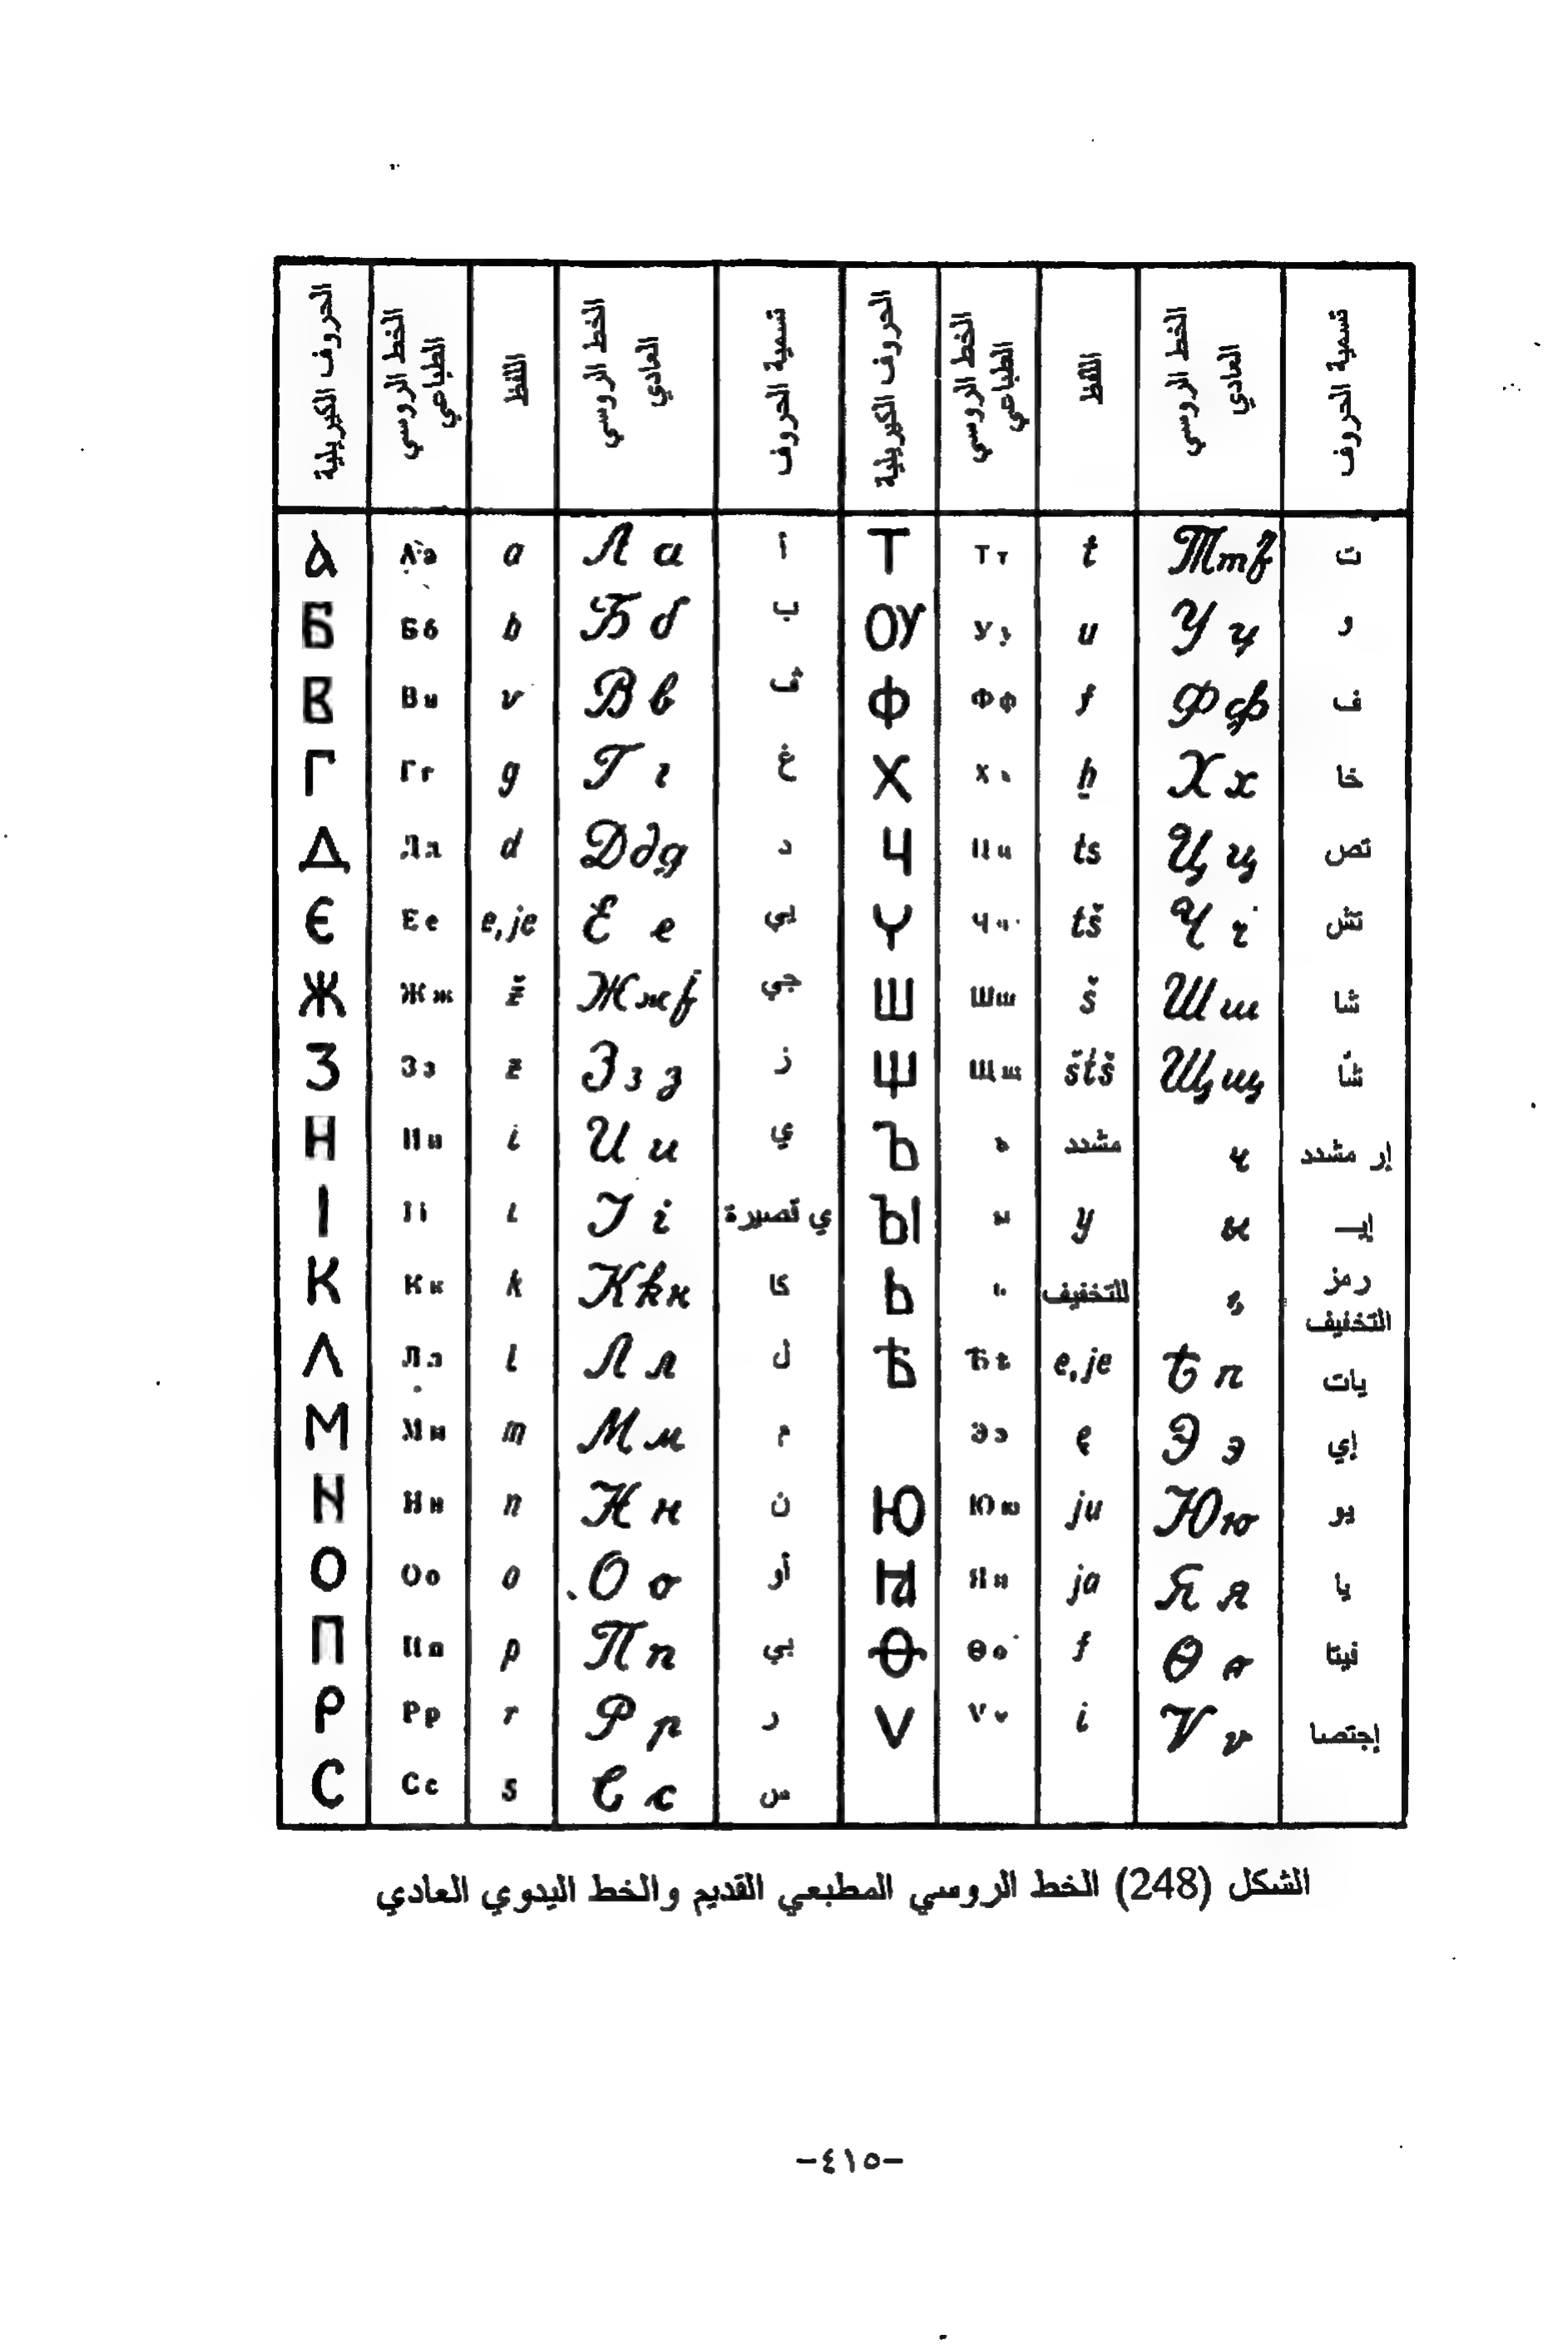 الحروف الكيريلية	الخط الروسي الطباعي	اللفظ	الخط الروسي العادي	تسمية الحروف	الحروف الكيريلية	الخط الروسي الطباعي	اللفظ	الخط الروسي العادي	تسمية الحروف
А	Аа	a	А а	أ	Т	Тт	t	Т т	تا
Б	Бб	b	Б б	ب	ОУ	Уу	u	У у	و
В	Вв	v	В в	ف	Ф	Фф	f	Ф ф	ف
Г	Гг	g	Г г	غ	Х	Хх	ḫ	Х х	خا
Д	Дд	d	Д д	د	Ч	Цц	ts	Ц ц	تص
Є	Ее	e, je	Е е	يي	Ү	Чч	tš	Ч ч	تش
Ж	Жж	ž	Ж ж	جي	Ш	Шш	š	Ш ш	شا
З	Зз	z	З з з	ز	Щ	Щщ	štš	Щ щ	شا
Н	Ии	i	И и	ي	Ъ	ъ	مشدد	ъ	إر مشدد
І	Іі	i	І і	ي قصيرة	ЪІ	ы	y	ы
К	Кк	k	К k к	كا	Ь	ь	للتخفيف	ь	رمز التخفيف
Λ	Лл	l	Л л	ل	Ѣ	Ѣѣ	e, je	Ѣ п	يات
М	Мм	m	М м	م	Ээ	ę	Э э	إي
N	Нн	n	Н н	ن	Ю	Юю	ju	Ю ю	يو
О	Оо	o	О о	أو	Яя	ja	Я я	يا
П	Пп	p	П п	بي	Ѳ	Ѳѳ	f	Ѳ ѳ	فيتا
Р	Рр	r	Р р	ر	V	Vv	i	V v	إجتصا
С	Сс	s	С с	س
الشكل (248) الخط الروسي المطبعي القديم والخط اليدوي العادي
-٤١٥-